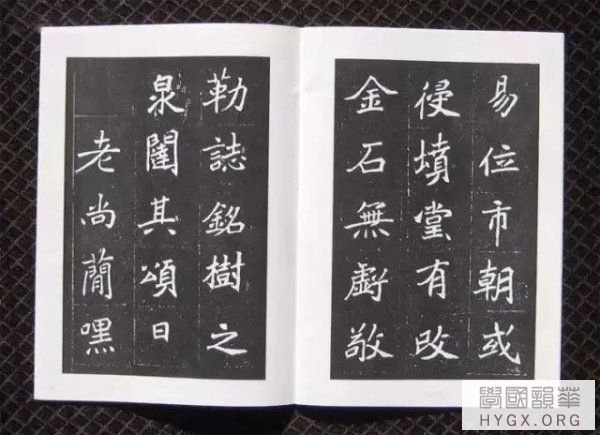 易位市朝或
侵墳堂有改
金石無虧敬
勒誌銘樹之
泉闥其頌曰
老尚蕳嘿
華韻國學
HYGX.ORG